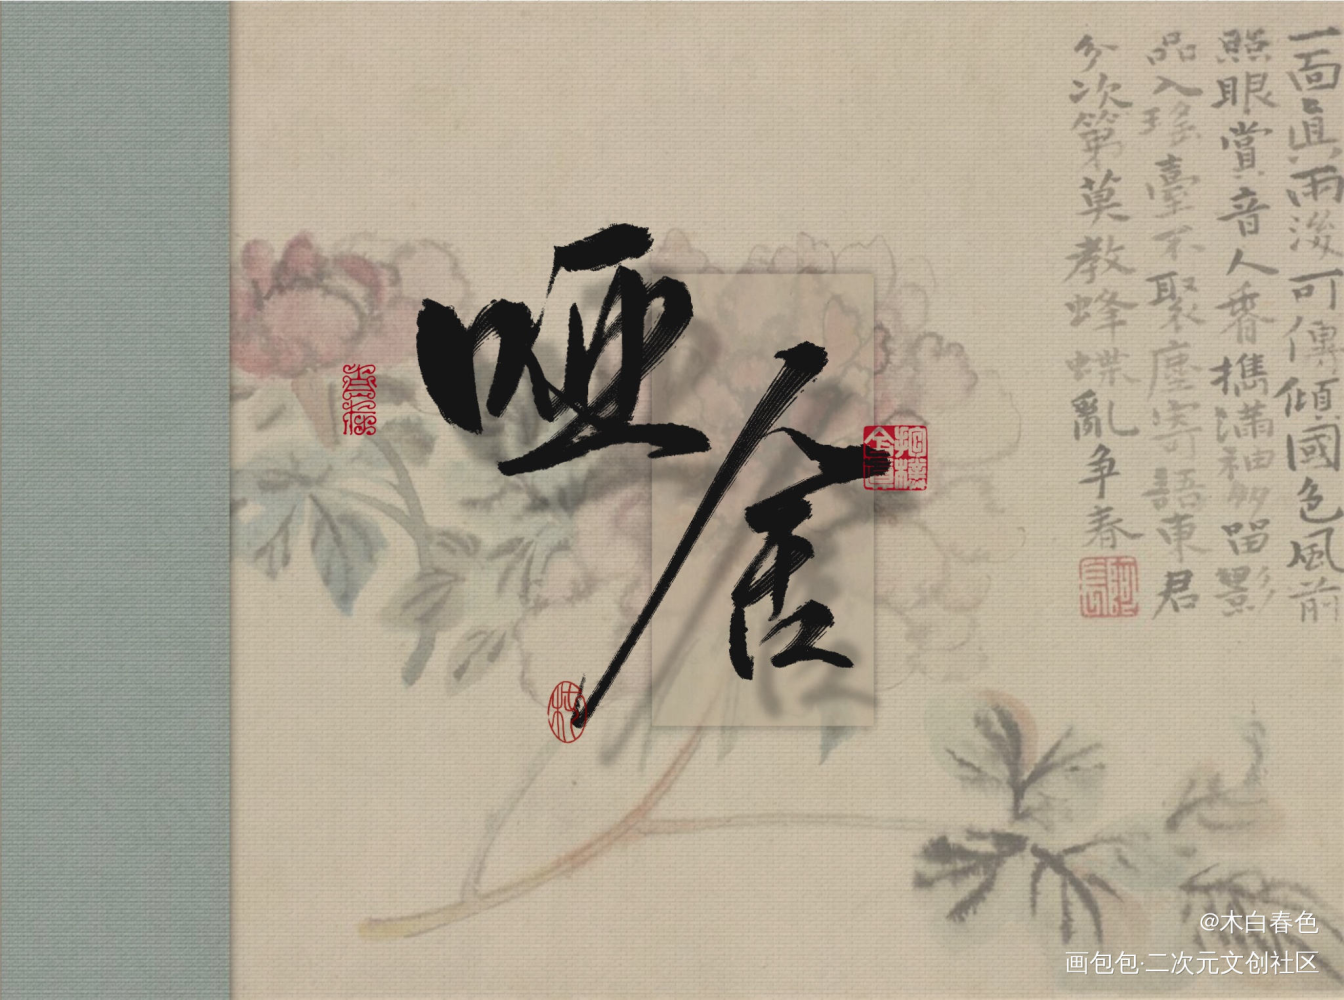 哑舍
一面真雨後可傳傾國色風前
照眼賞音人番攜滿袖留影
品入瑤臺不聚塵寄語東君
分次第莫教蜂蝶亂争春
@木白春色
画包包·二次元文创社区